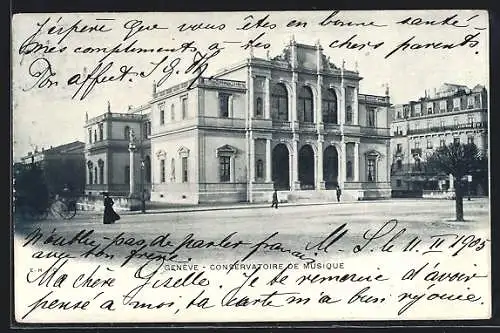 J'espère que vous êtes en bonne santé
Mes compliments à tes chers parents.
Ton affect.
N'oublie pas de parler français
avec ton frère
M. S. le 11 II 1905
GENÈVE - CONSERVATOIRE DE MUSIQUE
Ma chère Giselle. Je te remercie d'avoir
pensé à moi, ta carte m'a bien réjouie.